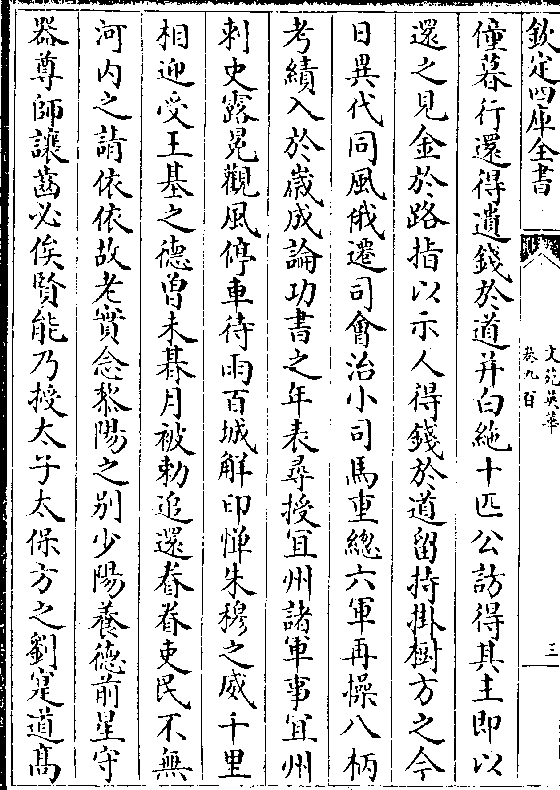 欽定四庫全書
文苑英華
卷九百
三
僮暮行還得遺錢於道并白絁十匹公訪得其主即以
還之見金於路指以示人得錢於道留持掛樹方之今
日異代同風俄遷司會治小司馬重總六軍再操八柄
考績入於嵗成論功書之年表尋授冝州諸軍事冝州
刺史露冕觀風停車待雨百城解印憚朱穆之威千里
相迎受王基之德曽未朞月被勅追還眷眷吏民不無
河内之請依依故老實念黎陽之别少陽養德前星守
器尊師讓齒必俟賢能乃授太子太保方之劉寔道髙